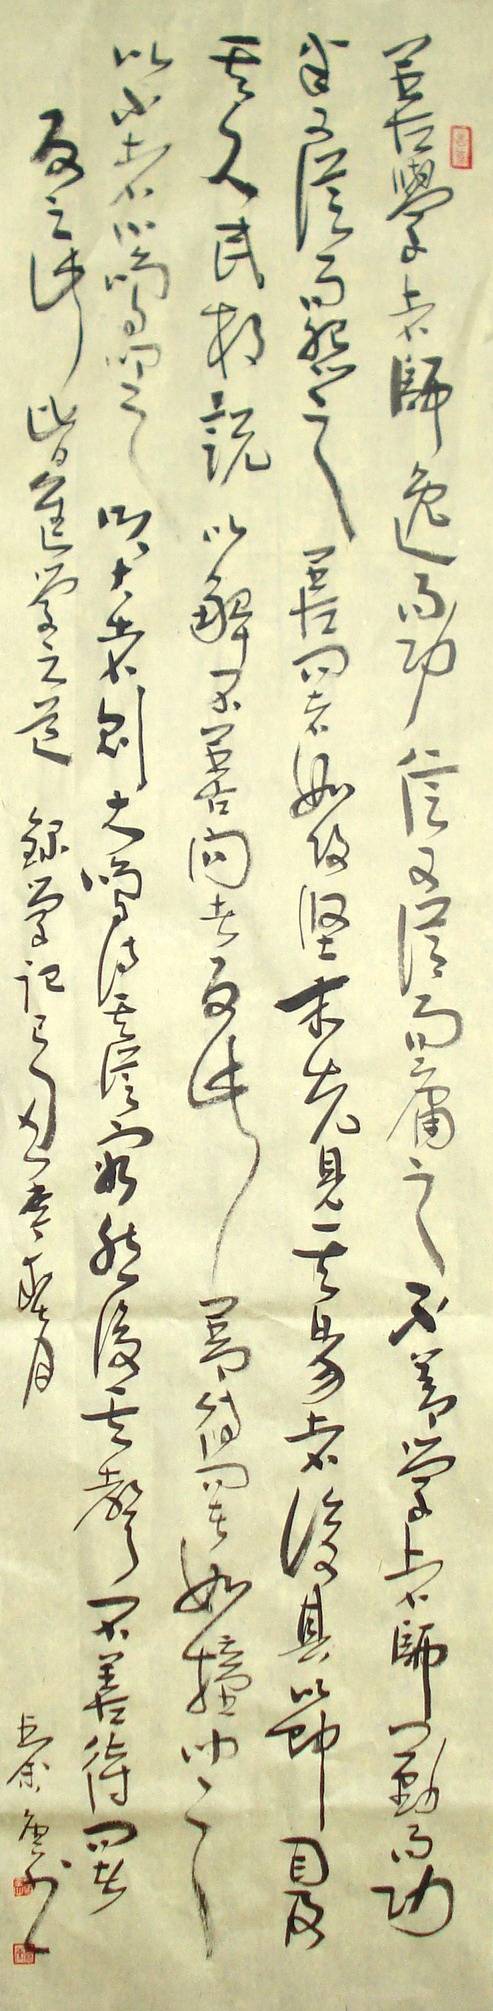 善學者師逸而功倍又從而庸之不善學者師勤而功
半又從而怨之善問者如攻堅木先其易者後其節目及
其久也相說以解不善問者反此善待問者如撞鐘叩之
以小者小鳴叩之以大者則大鳴待其從容然後其聲不善待問者
反之此皆進學之道錄學記己丑春月